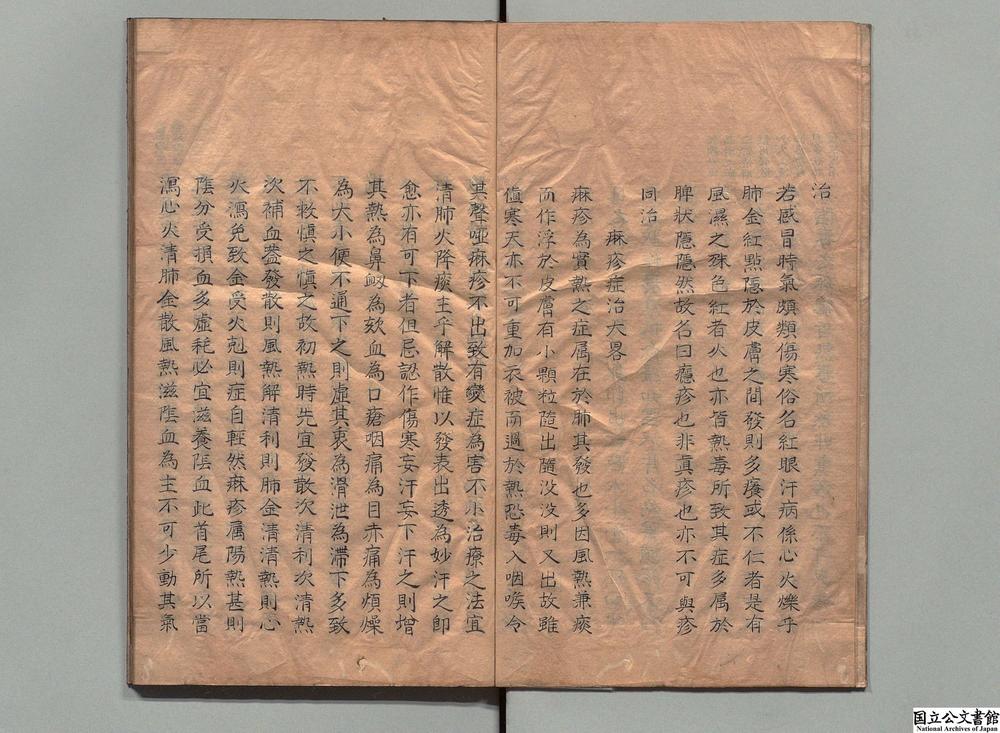 治
若感冒時氣頗類傷寒俗名紅眼汗病係心火爍乎
肺金紅點隱於皮膚之間發則多癢或不仁者是有
風濕之殊色紅者火也亦皆熱毒所致其症多属於
脾狀隱隱然故名曰癮疹也非真疹也亦不可與疹
同治
麻疹症治大畧
麻疹為實熱之症属在於肺其發也多因風熱兼痰
而作浮於皮膚有小顆粒隨出隨没没則又出故雖
值寒天亦不可重加衣被而過於熱恐毒入咽喉令
其聲啞麻疹不出致有變症為害不小治療之法宜
清肺火降痰主乎解散惟以發表出透為妙汗之即
愈亦有可下者但忌認作傷寒妄汗妄下汗之則增
其熱為鼻衂為欬血為口瘡咽痛為目赤痛為煩燥
為大小便不通下之則虛其裏為滑泄為滯下多致
不救慎之慎之故初熱時先宜發散次清利次清熱
次補血蓋發散則風熱解清利則肺金清清熱則心
火瀉免致金受火剋則症自輕然麻疹属陽熱甚則
陰分受損血多虛耗必宜滋養陰血此首尾所以當
瀉心火清肺金散風熱滋陰血為主不可少動其氣
国立公文書館
National Archives of Japan